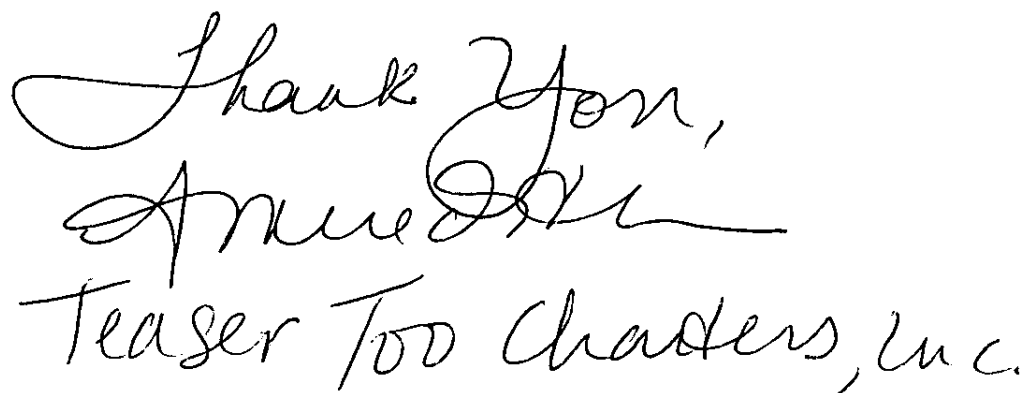 Thank You,
Teaser Too Charters, Inc.